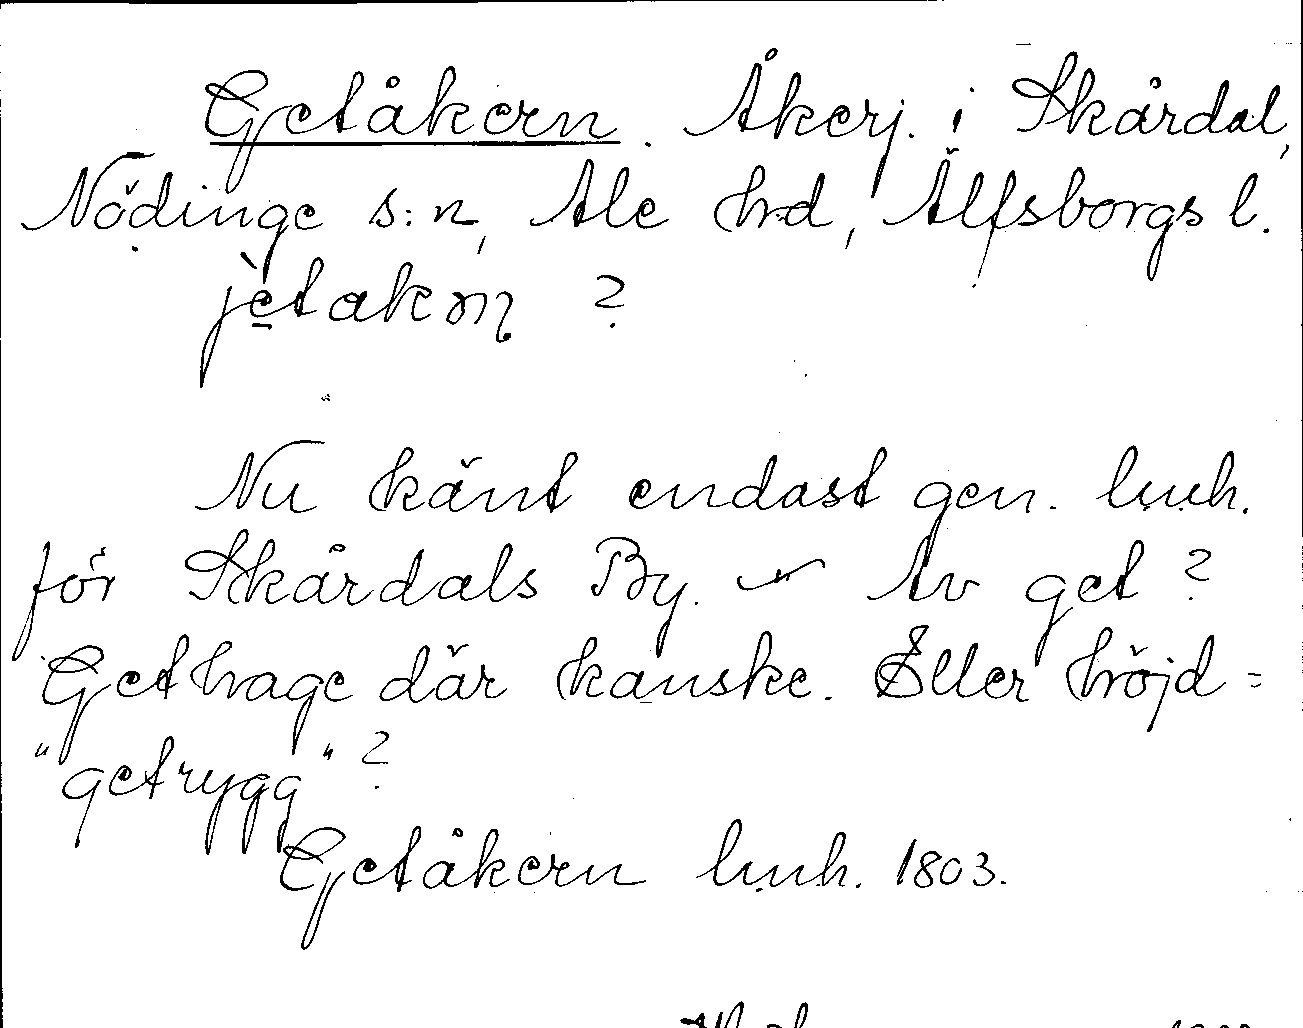 Getåkern. Åkerj. i Skårdal,
Nödinge s:n, Ale hd, Älfsborgs l.
jètakɷn ?
Nu känt endast gen. lm.h.
för Skårdals By. – Av get ?
Gethage där kanske. Eller höjd=
"getrygg" ?
Getåkern lm.h. 1803.